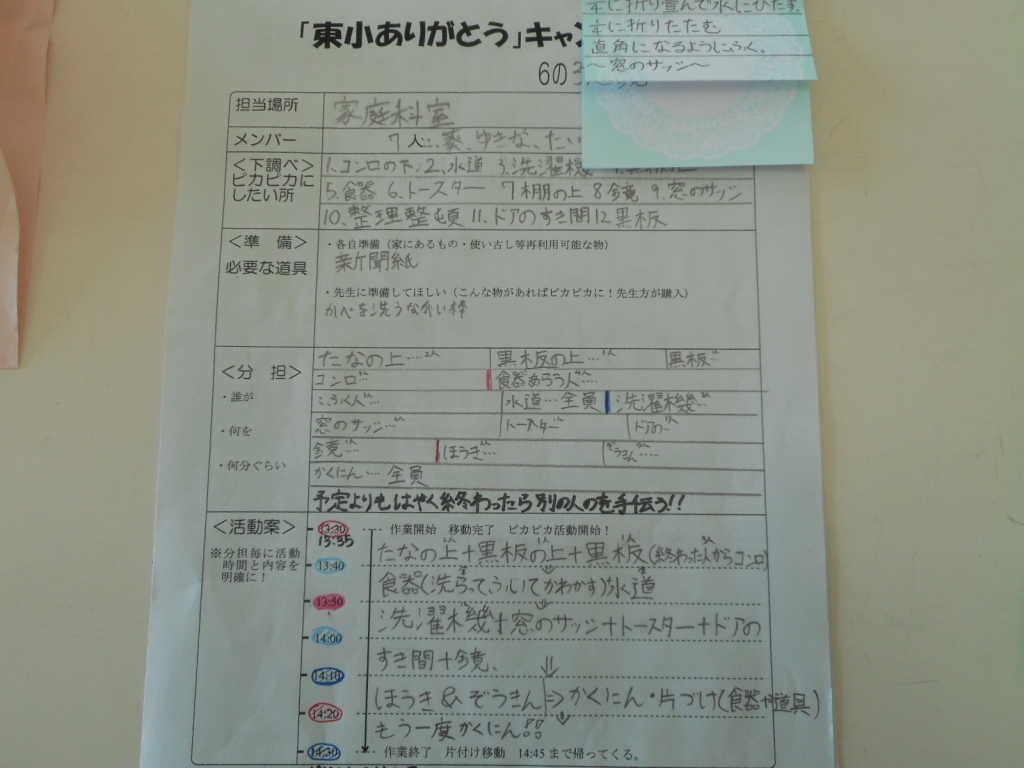 「東小ありがとう」キャン
6の3
に折り畳んで水にひたす。
に折りたたむ
直角になるようにふく。
～窓のサッシ～
担当場所 家庭科室
メンバー 7人…葵、ゆきな、たい
＜下調べ＞ 1.コンロの下 2.水道 3.洗濯機
ピカピカに
したい所 5.食器 6.トースター 7棚の上 8鏡 9.窓のサッシ
10.整理整頓 11.ドアのすき間 12黒板
＜準 備＞ ・各自準備（家にあるもの・使い古し等再利用可能な物）
必要な道具 新聞紙
・先生に準備してほしい（こんな物があればピカピカに！先生方が購入）
かべを洗うながい棒
たなの上…2人 黒板の上…1人 黒板…
＜分 担＞ コンロ… 食器あらう人…
・誰が ふく人… 水道…全員 洗濯機…
・何を 窓のサッシ… トースター ドアの
鏡… ほうき… ぞうきん…
・何分ぐらい かくにん…全員
予定よりもはやく終わったら別の人のを手伝う!!
＜活動案＞ 13:30 作業開始 移動完了 ピカピカ活動開始！
13:35
※分担毎に活動 たなの上＋黒板の上＋黒板(終わった人からコンロ)
時間と内容を 13:40
明確に！ 食器(洗らって、ふいてかわかす)水道
13:50
洗濯機＋窓のサッシ＋トースター＋ドアの
14:00
すき間＋鏡、⇓
14:10
ほうき＆ぞうきん⇒かくにん・片づけ(食器や道具)
14:20
もう一度かくにん!!
14:30 作業終了 片付け移動 14:45まで帰ってくる。